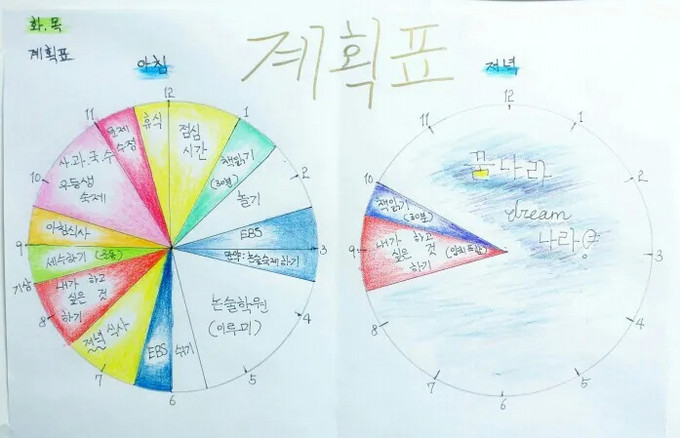 화.목
계획표
계획표
아침
12
1
2
3
4
5
6
7
8
기상
9
10
11
휴식
점심
시간
책읽기
(30분)
놀기
EBS
만약:논술숙제하기
논술학원
(이루미)
쉬기
EBS
저녁 식사
내가 하고
싶은 것
하기
세수하기
아침식사
사.과.국.수
우등생
숙제
문제
수정
저녁
12
1
2
3
4
5
6
7
8
9
10
11
꿈나라
dream
나라
책읽기
(30분)
내가 하고
싶은 것
하기